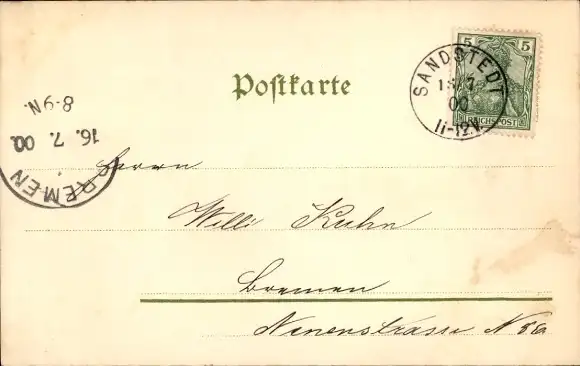 Postkarte
5 5
REICHSPOST
SANDSTEDT
7
00
11-12V.
8-9N.
16. 7. 00.
BREMEN
Herrn
Willi Kuhn
Bremen